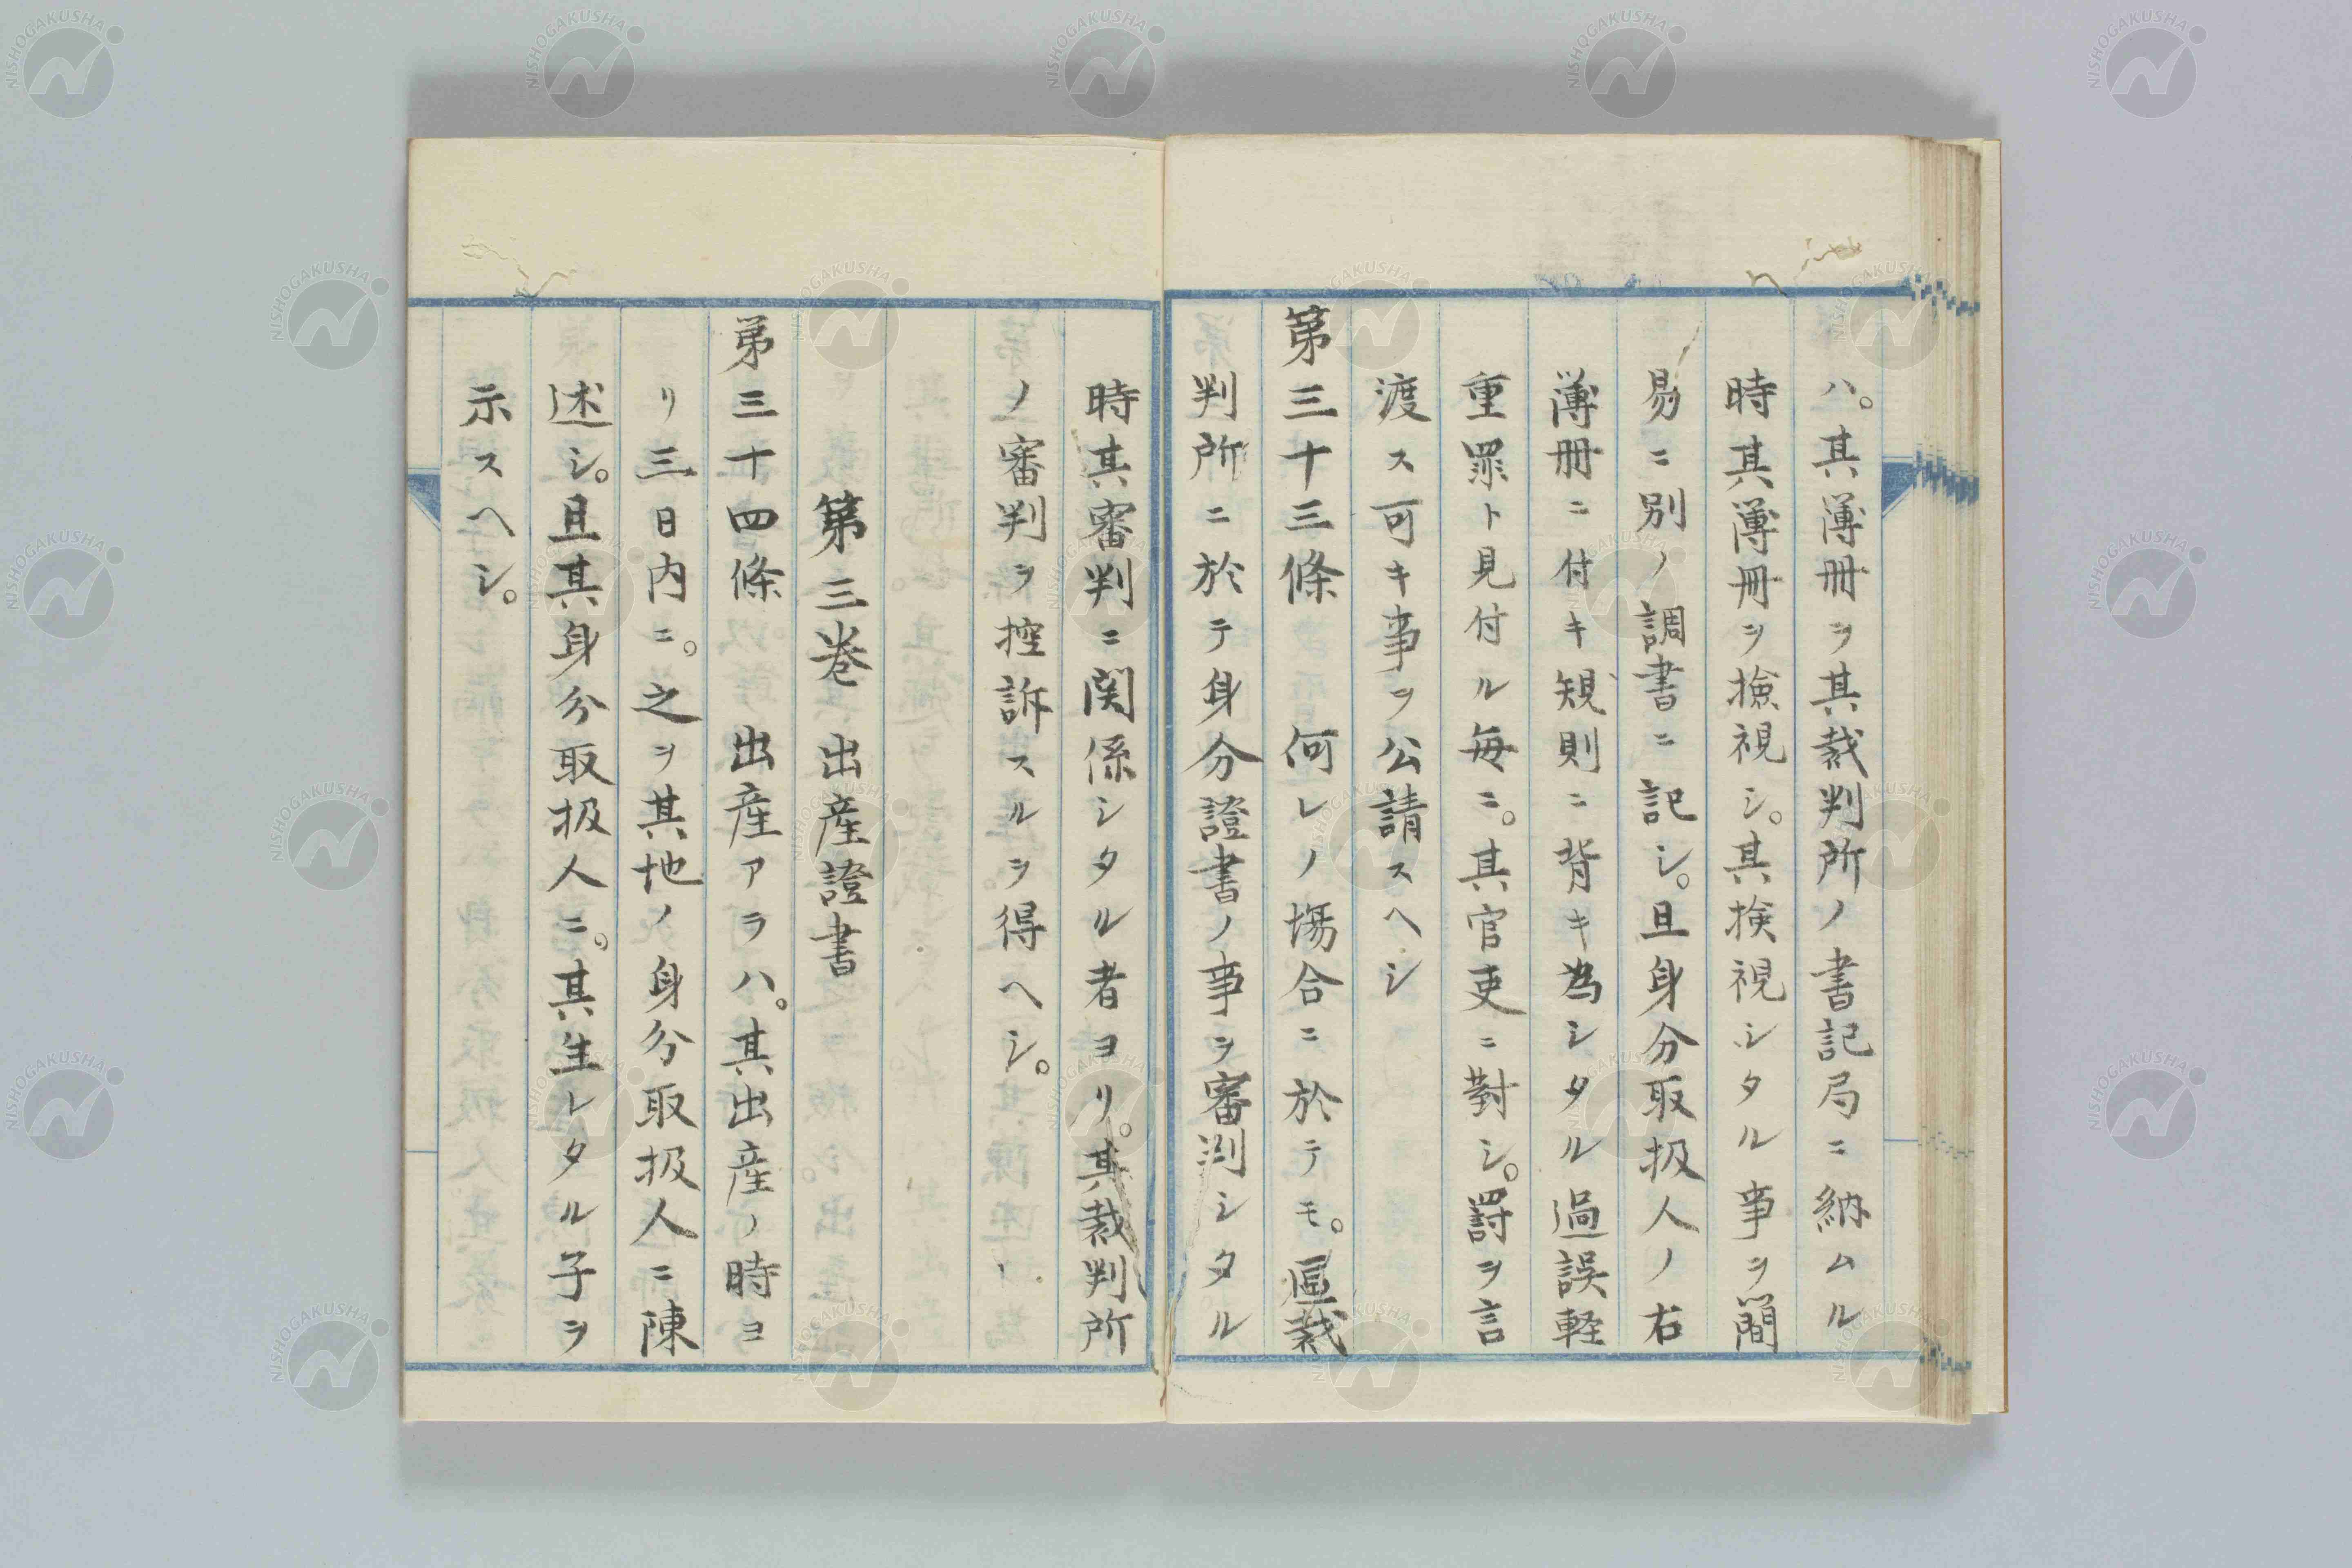 ハ。其簿冊ヲ其裁判所ノ書記局ニ納ムル
時其簿冊ヲ撿視シ。其検視シタル事ヲ簡
易ニ別ノ調書ニ記シ。且身分取扱人ノ右
簿冊ニ付キ規則ニ背キ為シタル過誤軽
重罪ト見付ル毎ニ。其官吏ニ對シ。罸ヲ言
渡ス可キ事ヲ公請スヘシ
第三十三條 何レノ塲合ニ於テモ。區裁
判所ニ於テ身分證書ノ事ヲ審判シタル
時其審判ニ関係シタル者ヨリ。其裁判所
ノ審判ヲ控訴スルヲ得ヘシ。
第三巻 出産證書
第三十四條 出産アラハ。其出産ノ時ヨ
リ三日内ニ。之ヲ其地ノ身分取扱人ニ陳
述シ。且其身分取扱人ニ。其生レタル子ヲ
示スヘシ。
NISHOGAKUSHA